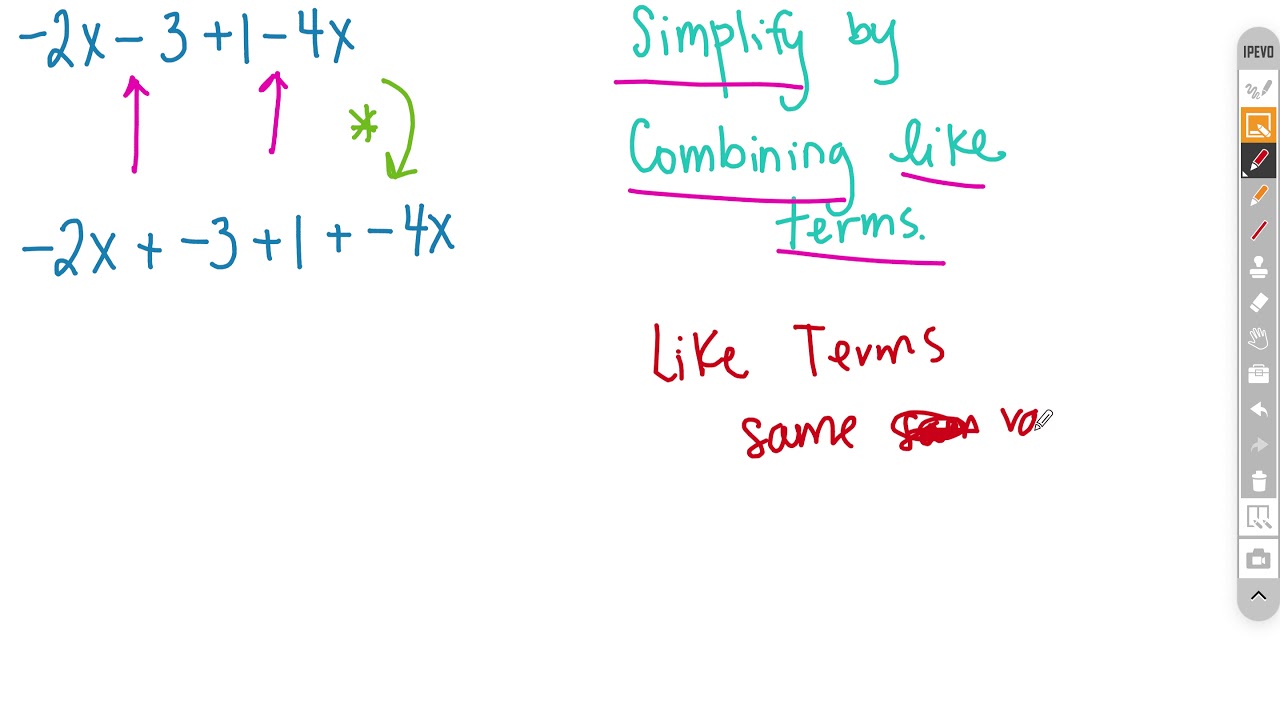 -2x - 3 + 1 - 4x
*
-2x + -3 + 1 + -4x
Simplify by
Combining like
terms.
Like Terms
same va
IPEVO